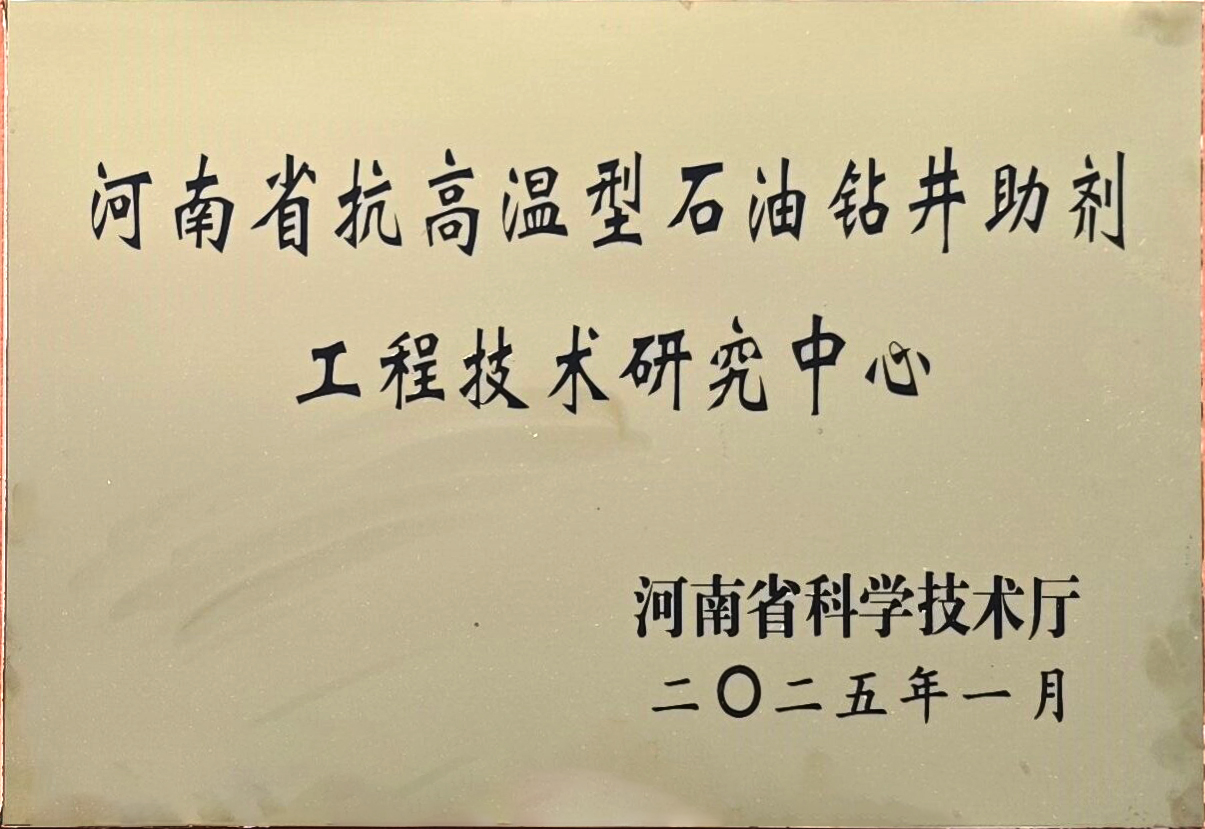 河南省抗高温型石油钻井助剂
工程技术研究中心
河南省科学技术厅
二〇二五年一月